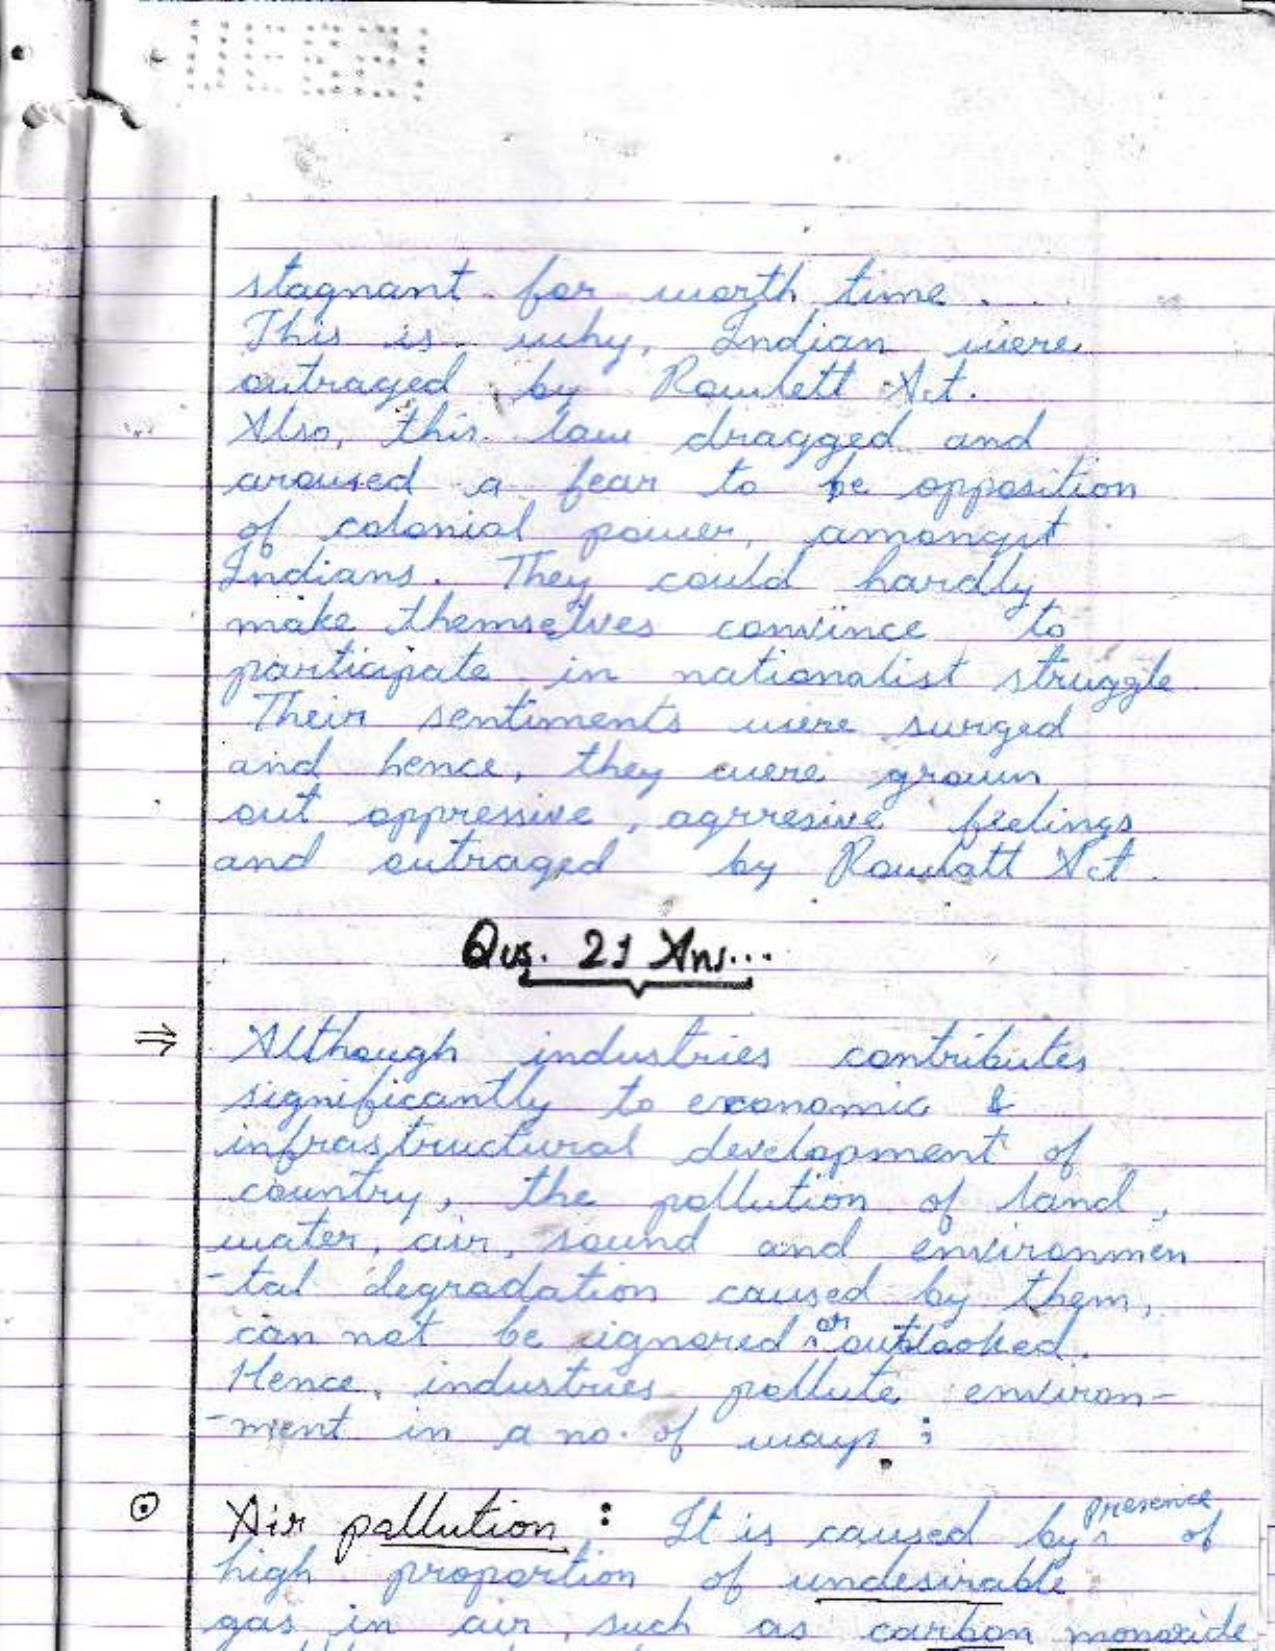 stagnant for worth time.
This is why, Indian were
outraged by Rowlett Act.
Also, this law dragged and
aroused a fear to be opposition
of colonial power, amongst
Indians. They could hardly
make themselves convince to
participate in nationalist struggle
Their sentiments were surged
and hence, they were grown
out oppressive, agrresive feelings
and outraged by Rowlatt Act.
Qus. 21 Ans...
⇒ Although industries contributes
significantly to economic &
infrastructural development of
country, the pollution of land,
water, air, sound and environmen
-tal degradation caused by them,
can not be ignored or outlooked.
Hence, industries pollute environ-
-ment in a no. of ways :
⊙ Air pollution : It is caused by presence of
high proportion of undesirable
gas in air, such as carbon monoxide